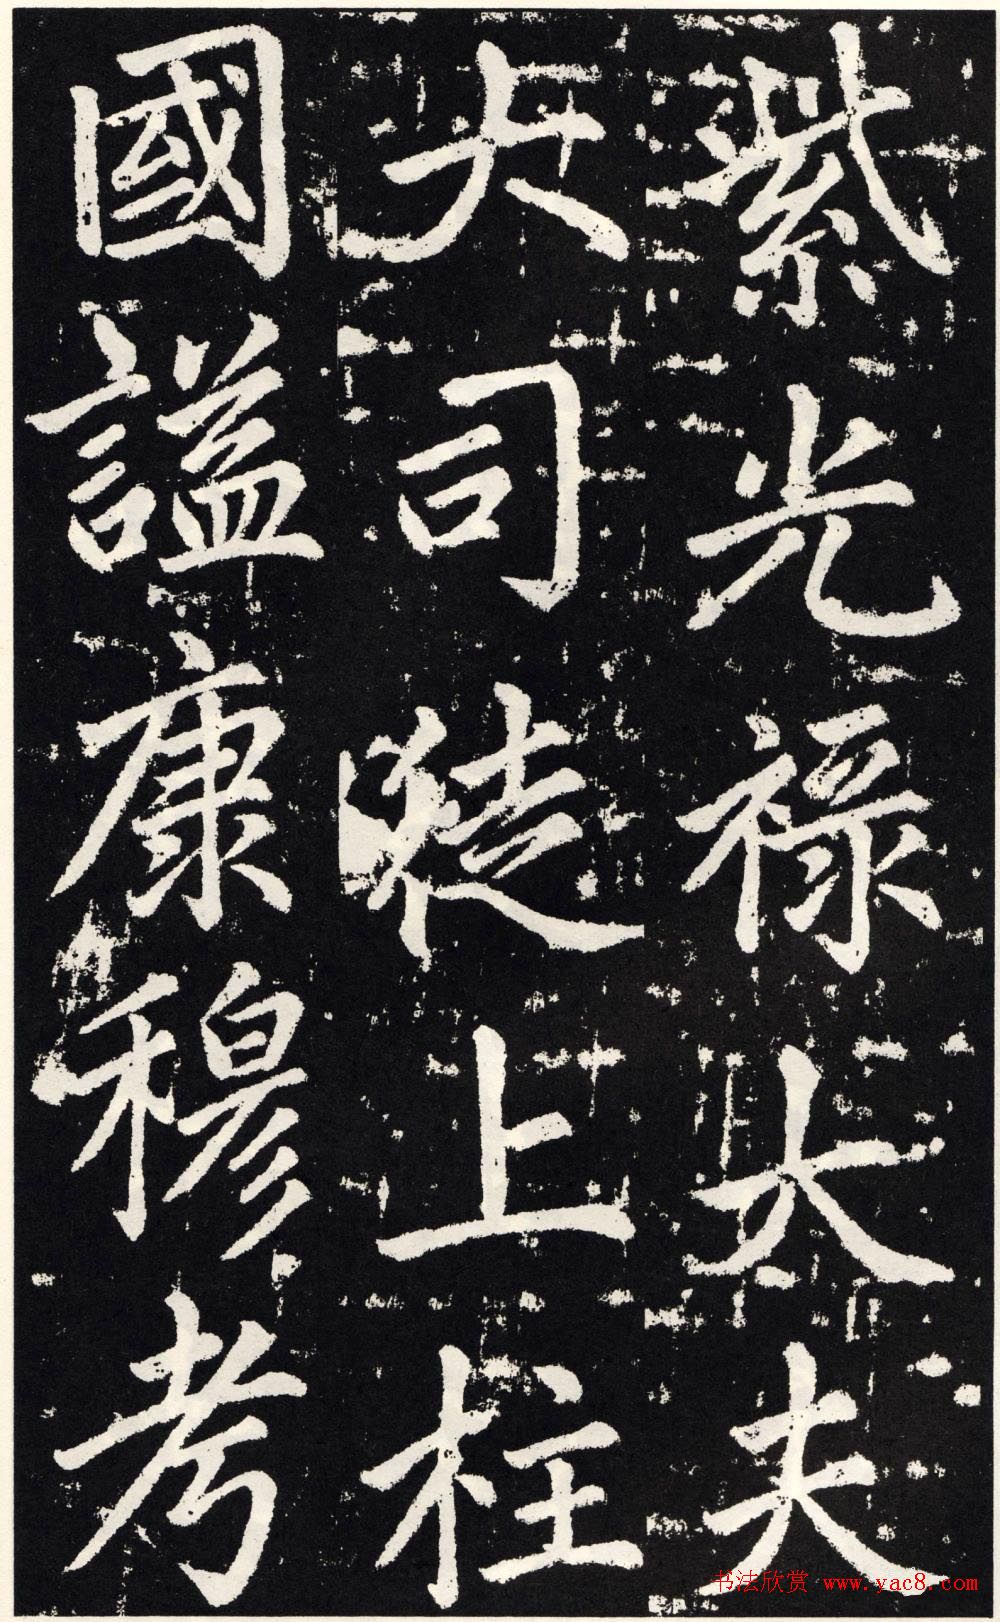 紫光祿大夫
大司徒上柱
國謚康穆考
书法欣赏 www.yac8.com